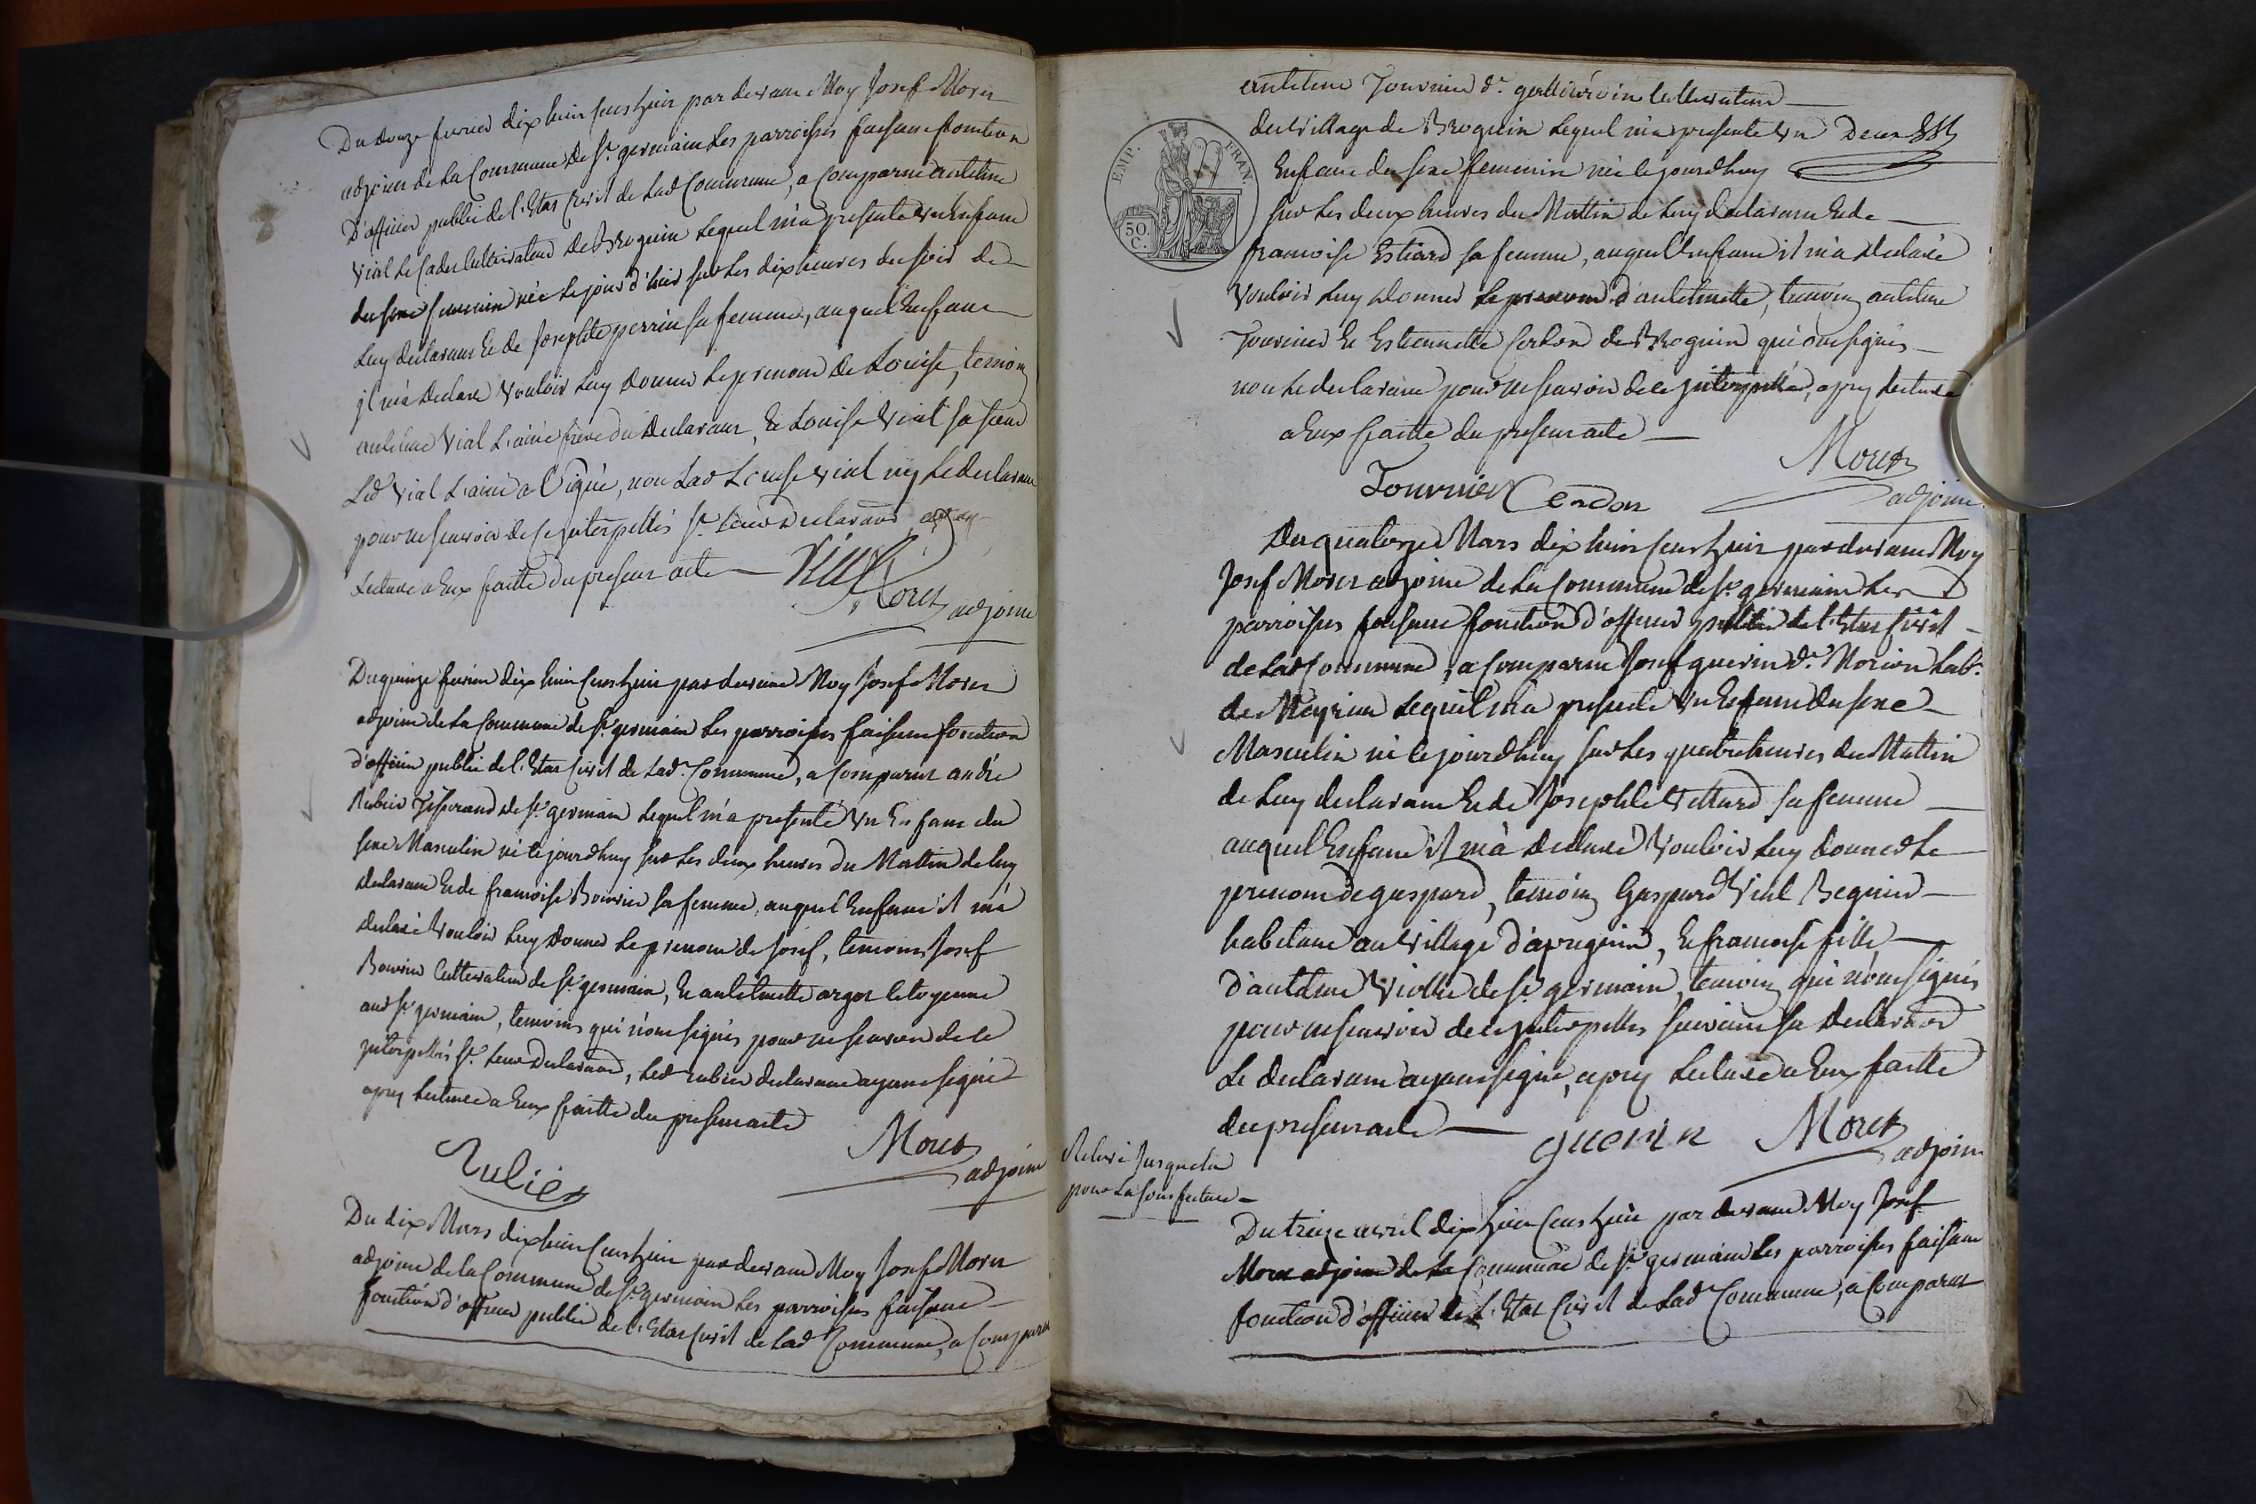 Du douze fevrier dix huit cent huit par devant Moy Josef Moret
adjoint de la Commune de St. germain les parroisses faisant fonction
D'officier public de l'Etat Civil de lad Commune, a Comparu antelme
Vial le Cadet Cultivateur de Brognin lequel m'a presenté un Enfant
du sexe feminin née le jour d'hier sur les dix heures du soir de
luy declarant et de Josephte perrin sa femme, auquel Enfant
jl m'a declaré Vouloir luy donner le prenom de Louise, temoin
antelme Vial L'ainé frere du declarant, et Louise Vial sa sœur
Led Vial L'ainé a signé, non lad Louise Vial ny le declarant
pour ne scavoir de ce jnterpellés St. leur declaration
lecture a Eux faitte du present acte
Vial
Moret adjoint
Du quinze fevrier dix huit cent huit par devant Moy Josef Moret
adjoint de la Commune de St. germain les parroisses faisant fonction
d'officier public de l'Etat Civil de lad. Commune, a Comparut andré
Rubier Tisserand de St. germain lequel m'a presenté un Enfant du
sexe Masculin né le jourdhuy sur les deux heures du Mattin de luy
declarant et de francoise Bouvier sa femme, auquel Enfant il m'a
declaré Vouloir luy donner le prenom de Josef, temoins Josef
Bouvier Cultivateur de St. germain, et antelmette argot Citoyenne
aud St. germain, temoins qui n'ont signés pour ne scavoir de ce
jnterpellés St. leur declaration, led rubier declarant ayant signé
apres lecture a Eux faitte du present acte
Moret
adjoint
Rubier
Du dix Mars dix huit Cent huit par devant Moy Josef Moret
adjoint de la Commune de St. germain les parroisses faisant
fonction d'officier public de l'Etat Civil de lad Commune, a Comparu
antelme Tournier dt. cultivateur
du Village de Brognin lequel m'a presenté un
Enfant du sexe feminin née le jourdhuy
EMP. FRAN.
50. C.
sur les deux heures du Mattin de luy declarant et de
francoise Estiard sa femme, auquel Enfant il m'a declaré
Vouloir luy donner le prenom d'antelmette, temoin antelme
Tournier et Estiennette Cerdon de Brognin qui ont signés
non le declarant pour ne scavoir de ce jnterpellé, apres lecture
a Eux faitte du present acte
Moret
adjoint
Tournier Cerdon
Du quatorze Mars dix huit cent huit par devant Moy
Josef Moret adjoint de la Commune de St. germain les
parroisses faisant fonction d'officier public de l'Etat Civil
de lad Commune, a Comparu Josef guerin dt. Morion lab.
de Meyrieu lequel m'a presenté un Enfant du sexe
Masculin né le jourdhuy sur les quatre heures du Mattin
de luy declarant et de Josephte Vettard sa femme
auquel Enfant il m'a declaré Vouloir luy donner le
prenom de gaspard, temoin Gaspard Vial Beguin
habitant au Village d'apregnin, et francoise fille
d'antelme Viollet de St. germain, temoin qui n'ont signés
pour ne scavoir de ce jnterpellés suivant sa declaration
le declarant ayant signé, apres lecture a Eux faitte
du present acte
guerin
Moret
adjoint
Relevé Jusques la
pour la sous prefecture
Du treize avril dix huit cent huit par devant Moy Josef
Moret adjoint de la Commune de St. germain les parroisses faisant
fonction d'officier de l'Etat Civil de lad Commune, a Comparut